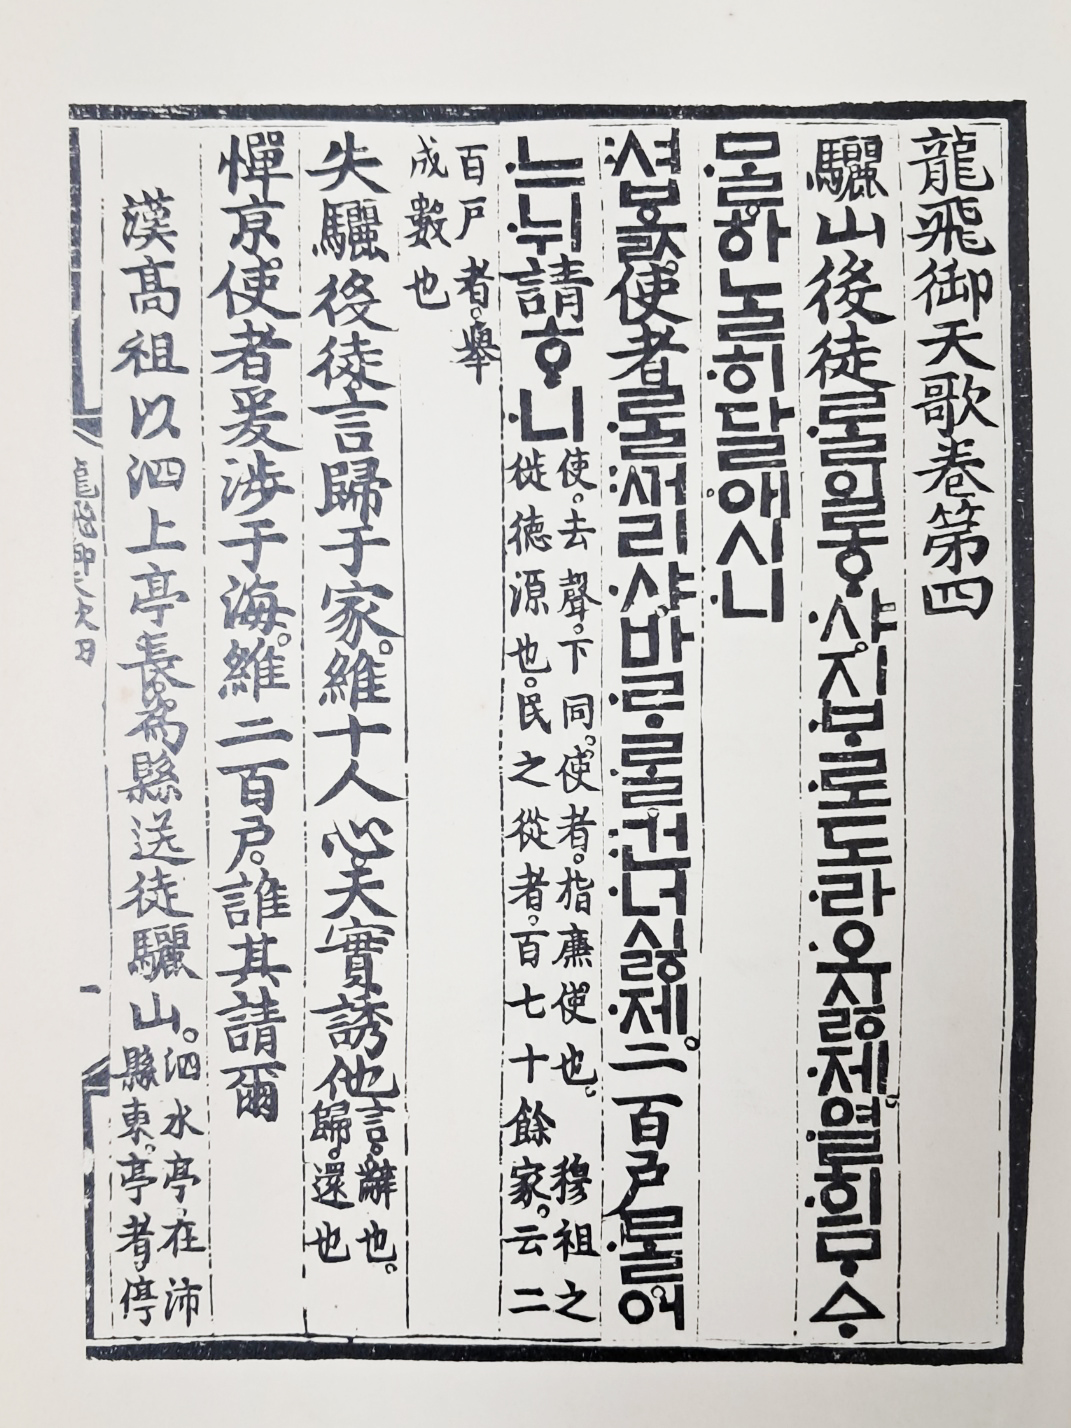 龍飛御天歌卷第四
驪山役徒ᄅᆞᆯ일ᄒᆞ샤지ᄇᆞ로도라오시ᇙ제。열희ᄆᆞᅀᆞ
ᄆᆞᆯ하ᄂᆞᆯ히달애시니
셔ᄫᅳᇌ使者ᄅᆞᆯᄭᅥ리샤바ᄅᆞᄅᆞᆯ건너시ᇙ제。二百戶ᄅᆞᆯ어
느뉘請ᄒᆞ니
使。去聲。下同。使者。指廉使也。穆祖之
徙德源也。民之從者。百七十餘家。云二
百戶者。舉
成數也
失驪役徒。言歸于家。維十人心。天實誘他
言。辭也。
歸。還也
憚京使者。爰涉于海。維二百戶。誰其請爾
漢高祖以泗上亭長。爲縣送徒驪山。
泗水亭。在沛
縣東。亭者。停
龍飛御天歌四
一